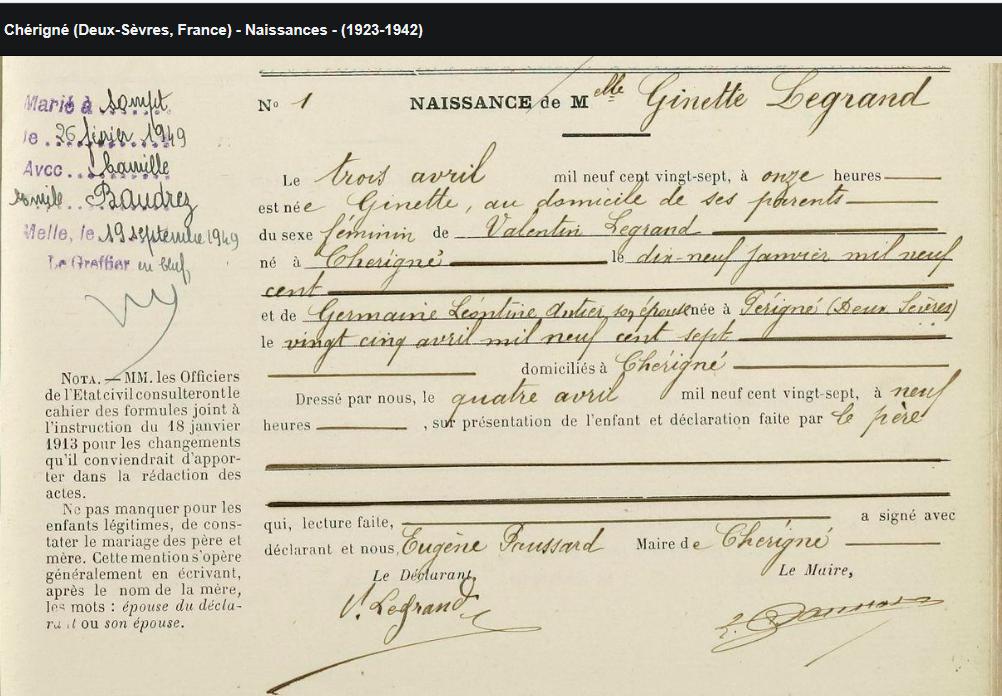 Chérigné (Deux-Sèvres, France) - Naissances - (1923-1942)
Marié à Sompt
le 26 février 1949
Avec Camille
Baudrez
Melle, le 19 septembre 1949
Le Greffier en chef,
NOTA. — MM. les Officiers
de l'Etat civil consulteront le
cahier des formules joint à
l'instruction du 18 janvier
1913 pour les changements
qu'il conviendrait d'appor-
ter dans la rédaction des
actes.
Ne pas manquer pour les
enfants légitimes, de cons-
tater le mariage des père et
mère. Cette mention s'opère
généralement en écrivant,
après le nom de la mère,
les mots : épouse du décla-
rant ou son épouse.
No 1 NAISSANCE de Mlle Ginette Legrand
Le trois avril mil neuf cent vingt-sept, à onze heures
est née Ginette, au domicile de ses parents
du sexe féminin de Valentin Legrand
né à Chérigné le dix-neuf janvier mil neuf
cent
et de Germaine Léontine Autier son épouse née à Périgné (Deux Sèvres)
le vingt cinq avril mil neuf cent sept
domiciliés à Chérigné
Dressé par nous, le quatre avril mil neuf cent vingt-sept, à neuf
heures , sur présentation de l'enfant et déclaration faite par le père
qui, lecture faite, a signé avec
déclarant et nous, Eugène Paussard Maire de Chérigné
Le Déclarant, Le Maire,
V. Legrand